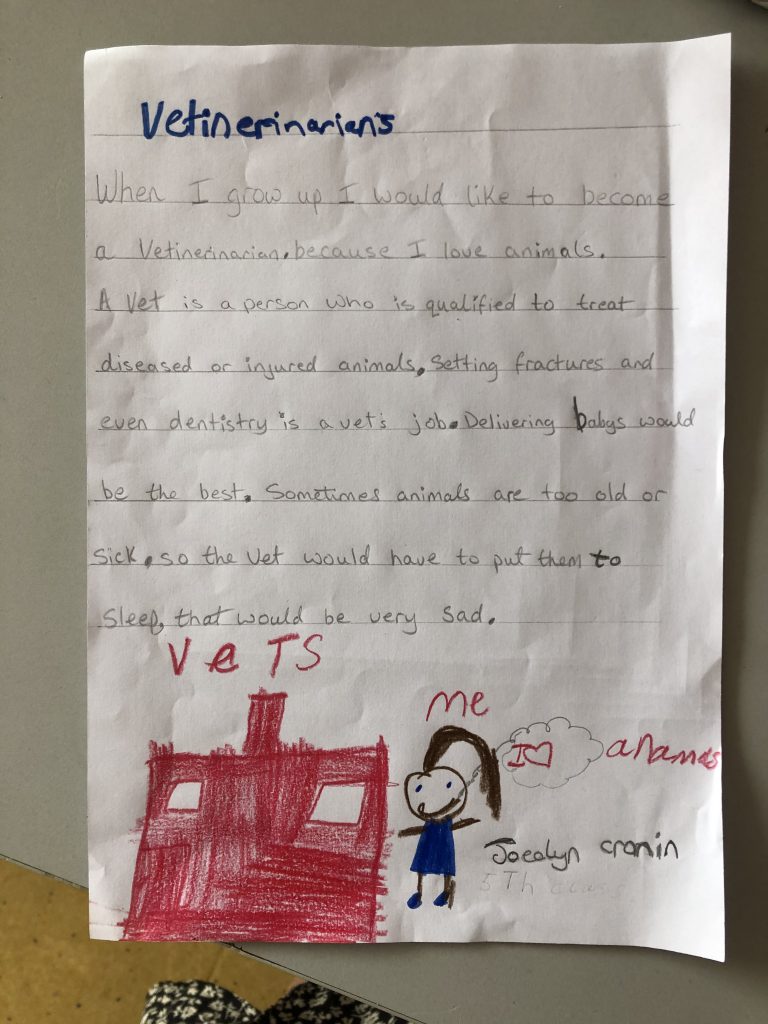 Vetinerinarian's
When I grow up I would like to become
a Vetinerinarian, because I love animals.
A Vet is a person who is qualified to treat
diseased or injured animals, Setting fractures and
even dentistry is a vet's job. Delivering babys would
be the best. Sometimes animals are too old or
sick, so the vet would have to put them to
sleep, that would be very sad.
VeTS
me
I♡ anamals
Jocelyn cronin
5Th class